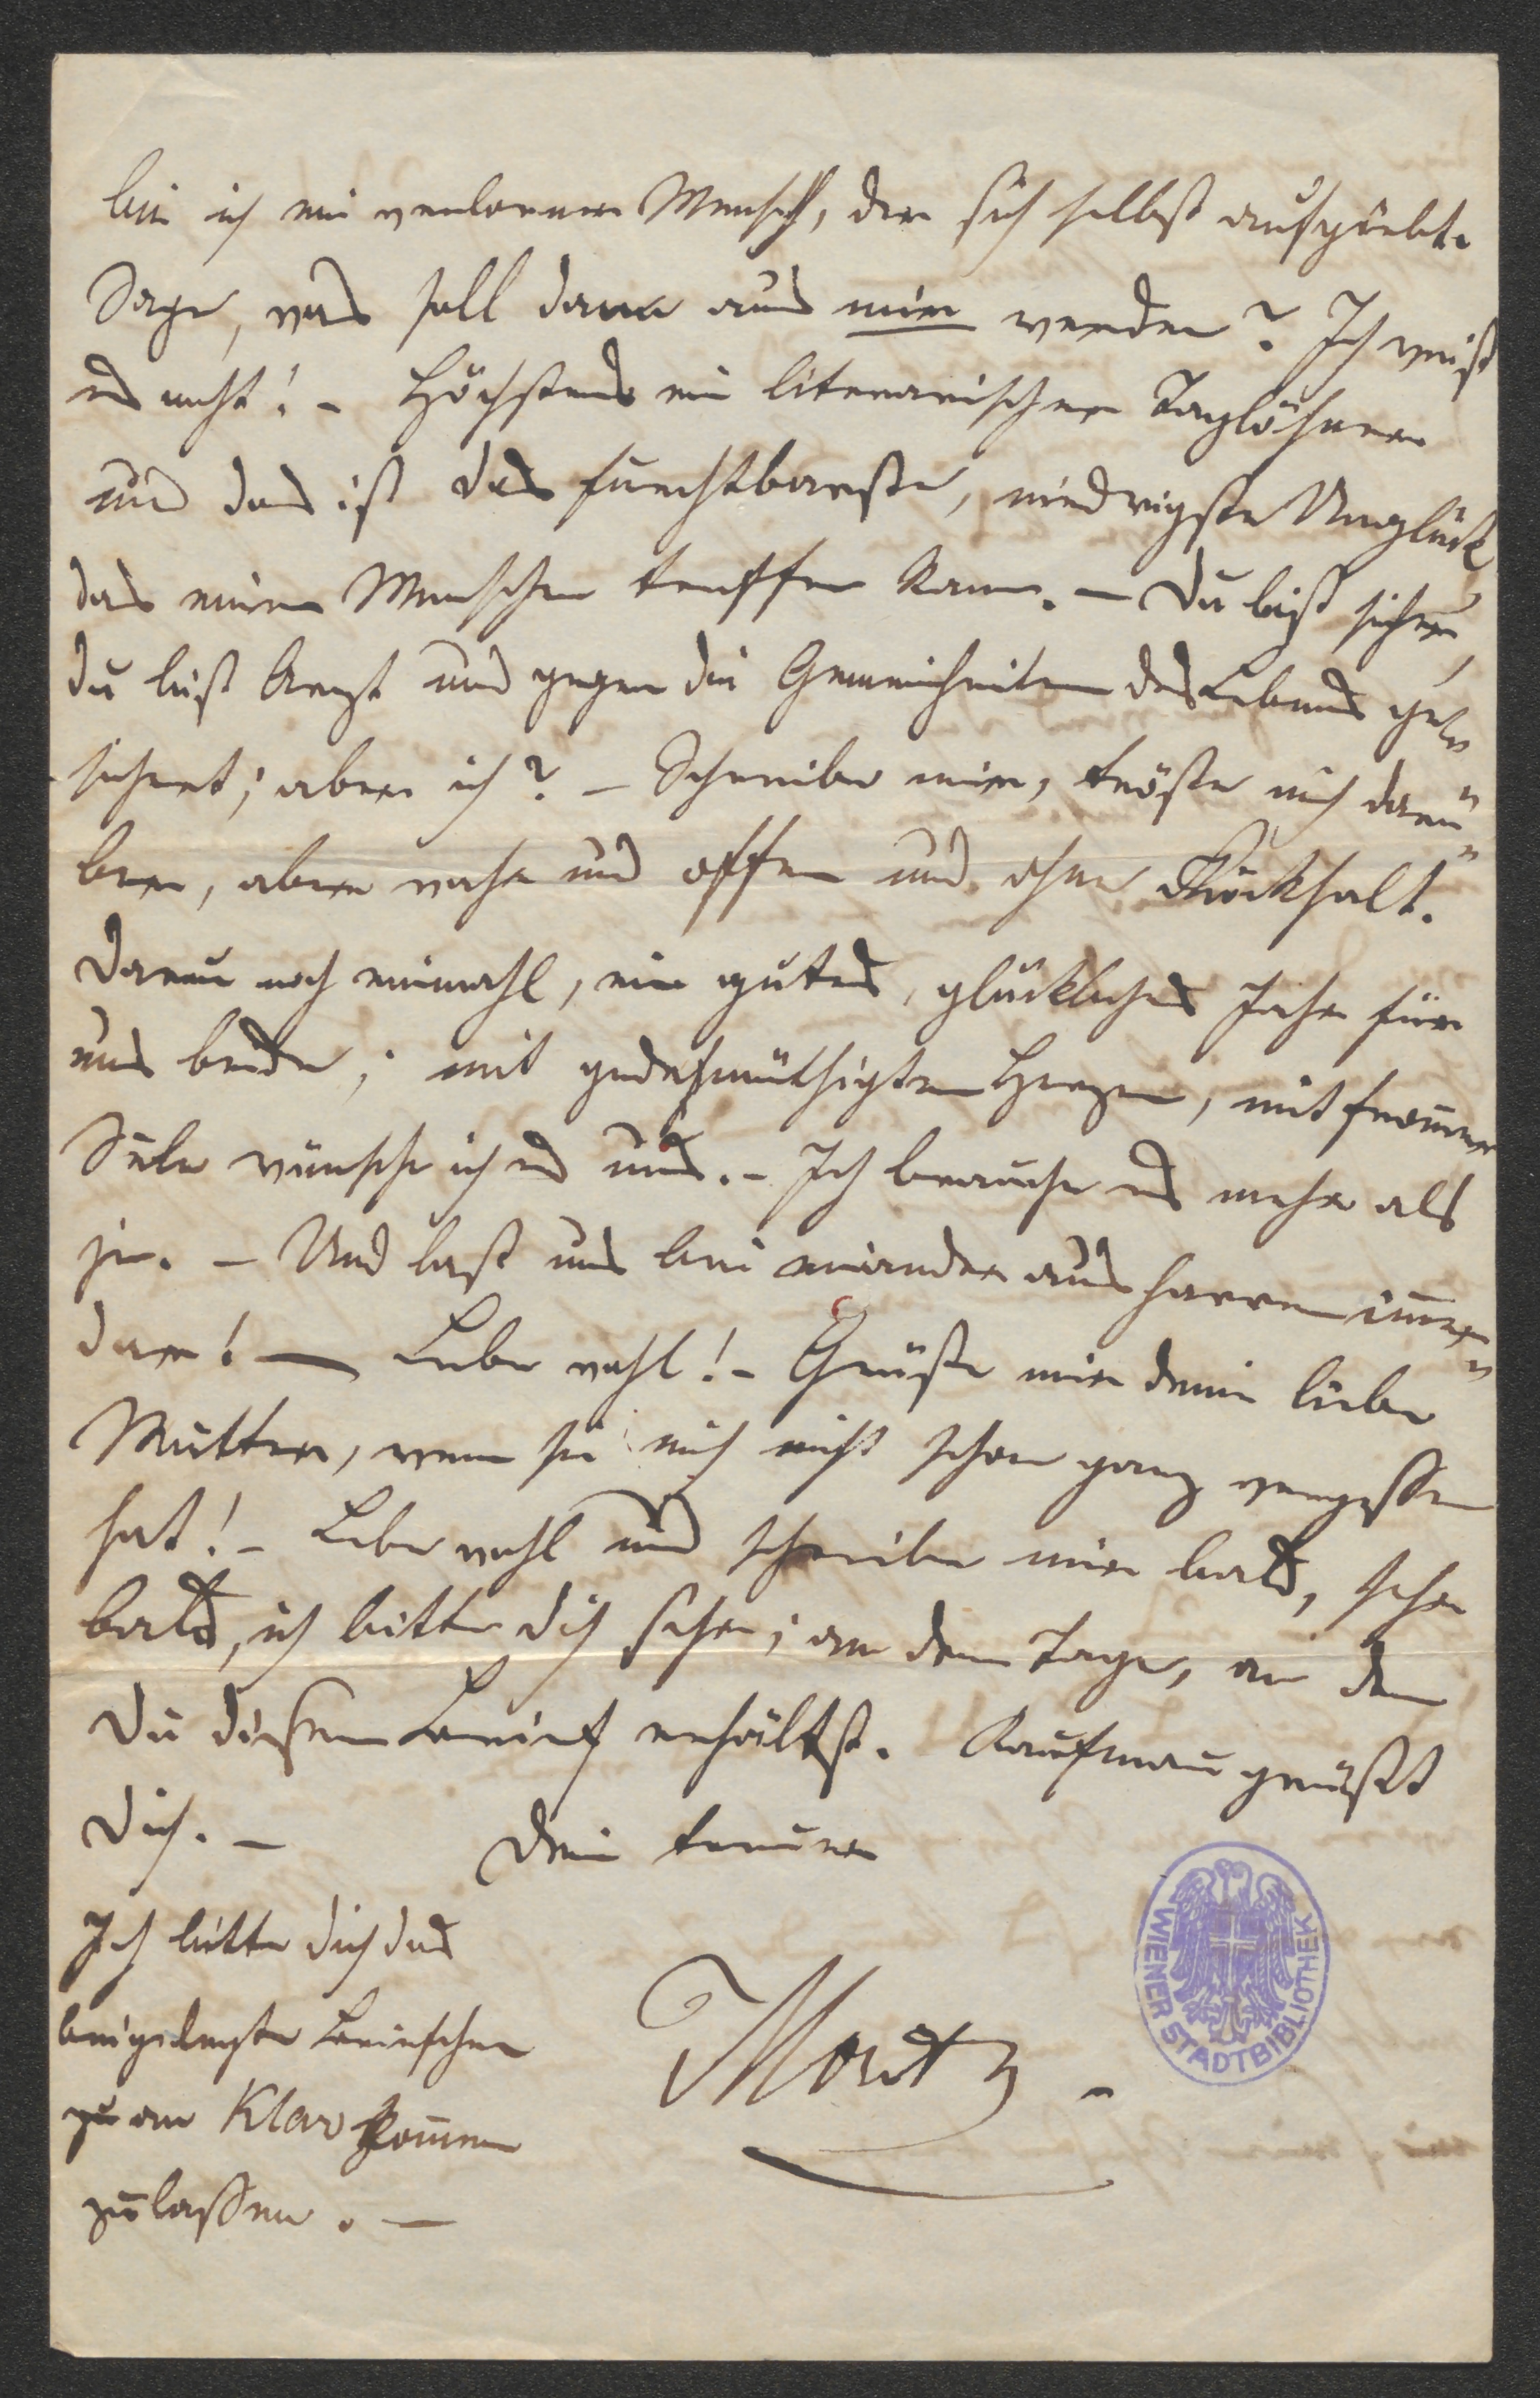 bin ich ein verlorener Mensch, der sich selbst aufgiebt.
Sage, was soll dann aus mir werden? Ich weiß
es nicht! – Höchstens ein literarischer Taglöhner
und das ist das furchtbarste, niedrigste Unglück
das einen Menschen treffen kann. – Du bist sicher,
du bist Arzt und gegen die Gemeinheiten des Lebens ge=
sichert; aber ich? – Schreibe mir, tröste mich darü=
ber, aber wahr und offen und ohne Rückhalt.
Darum noch einmahl, ein gutes, glückliches Jahr für
uns beide; mit gedehmüthigtem Herzen, mit from̅er
Seele wünsche ich es uns. – Ich brauche es mehr als
je. – Und laß uns bei einander ausharren im̅er=
dar! — Lebe wohl! – Grüße mir deine liebe
Mutter, wenn sie mich nicht schon ganz vergessen
hat! – Lebe wohl und schreibe mir bald, sehr
bald, ich bitte dich sehr; an dem Tage, an dem
Du diesen Brief erhältst. Kaufmann grüßt
Dich. –
Dein treuer
Moritz.
Ich bitte dich das
beigelegte Briefchen
an Klar kom̅en
zu lassen. —
WIENER STADTBIBLIOTHEK